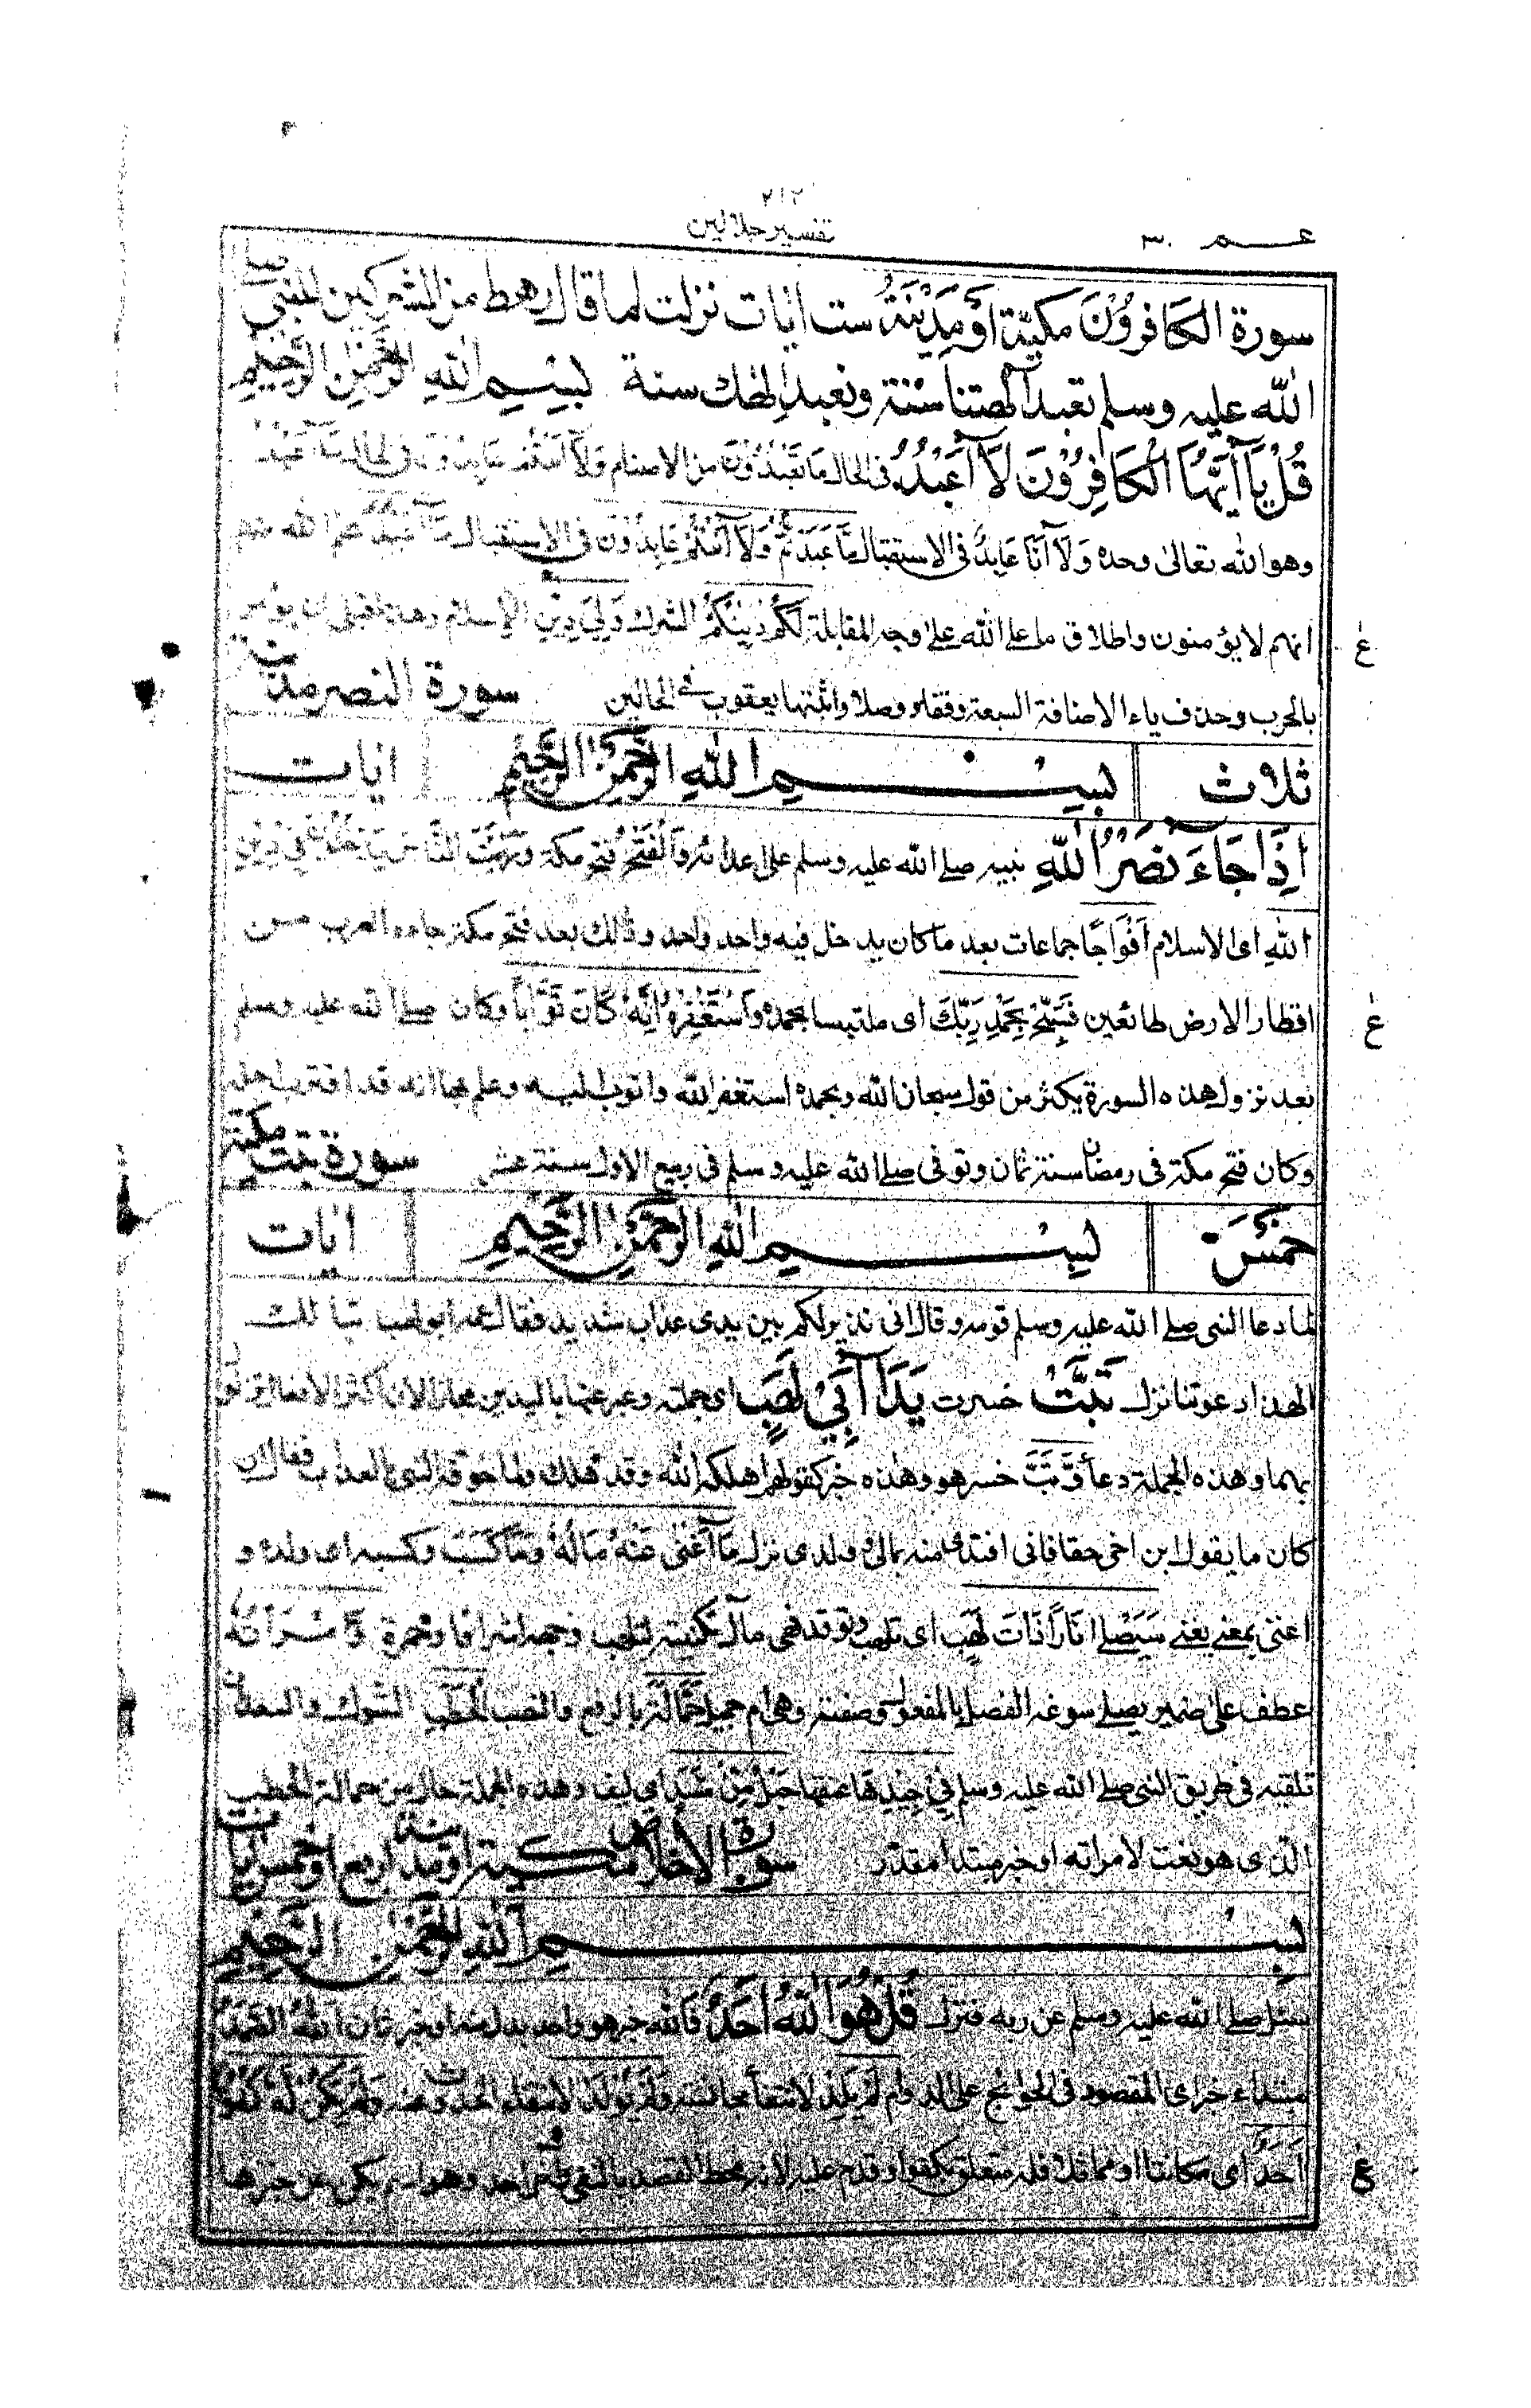 ٢١٢
عم ٣٠
تفسير جلالين
سورة الكافرون مكيّة أو مَدِينَةُ ست ايات نزلت لما قال رهط من المشركين للنبي صلے
الله عليه وسلم تعبد آلهتنا سنة ونعبد الهك سنة بِسْمِ اللهِ الرَّحْمٰنِ الرَّحِيْمِ
قُلْ يَآ أَيُّهَا الْكَافِرُوْنَ لَآ أَعْبُدُ فى الحال مَا تَعْبُدُوْنَ من الاصنام وَلَآ أَنْتُمْ عَابِدُوْنَ فى الحال مَآ أَعْبُدُ
وهو الله تعالى وحده وَلَآ أَنَا عَابِدٌ فى الاستقبال مَّا عَبَدْتُّمْ وَلَآ أَنْتُمْ عَابِدُوْنَ فى الاستقبال مَآ أَعْبُدُ علم الله منهم
انهم لا يؤمنون واطلاق ما على الله على وجه المقابلة لَكُمْ دِيْنُكُمْ الشرك وَلِيَ دِيْنِ الاسلام وهذا قبل ان يؤمر
بالحرب وحذف ياء الاضافة السبعة وقفا ووصلا واثبتها يعقوب فے الحالين سورة النصر مدنية
ثلاث بِسْمِ اللهِ الرَّحْمٰنِ الرَّحِيْمِ ايات
إِذَا جَآءَ نَصْرُ اللهِ نبيه صلے الله عليه وسلم على اعدائه وَالْفَتْحُ فتح مكة وَرَأَيْتَ النَّاسَ يَدْخُلُوْنَ فِيْ دِيْنِ
اللهِ اى الاسلام أَفْوَاجًا جماعات بعد ما كان يدخل فيه واحد واحد وذلك بعد فتح مكة جاءه العرب من
اقطار الارض طائعين فَسَبِّحْ بِحَمْدِ رَبِّكَ اى ملتبسا بحمده وَاسْتَغْفِرْهُ إِنَّهُ كَانَ تَوَّابًا وكان صلے الله عليه وسلم
بعد نزول هذه السورة يكثر من قول سبحان الله وبحمده استغفر الله واتوب اليه وعلم بها انه قد اقترب اجله
وكان فتح مكة فى رمضان سنة ثمان وتوفى صلے الله عليه وسلم فى ربيع الاول سنة عشر سورة تبت مكية
خمس بِسْمِ اللهِ الرَّحْمٰنِ الرَّحِيْمِ ايات
لما دعا النبى صلے الله عليه وسلم قومه وقال انى نذير لكم بين يدى عذاب شديد فقال عمه ابو لهب تبا لك
الهذا دعوتنا نزل تَبَّتْ خسرت يَدَآ أَبِيْ لَهَبٍ اى جملته وعبر عنها باليدين مجازا لان اكثر الافعال تزاول
بهما وهذه الجملة دعاء وَّتَبَّ خسر هو وهذه خبر كقولهم اهلكه الله وقد هلك ولما خوفه النبى بالعذاب فقال ان
كان ما يقول ابن اخى حقا فانى افتدى منه بمالى وولدى نزل مَآ أَغْنٰى عَنْهُ مَالُهُ وَمَا كَسَبَ وكسبه اى ولده و
اغنى بمعنے يغنے سَيَصْلٰے نَارًا ذَاتَ لَهَبٍ اى تلهب وتوقد فهى مآل تكنيته لتلهب وجهه اشراقا وحمرة وَّامْرَأَتُهُ
عطف على ضمير يصلے سوغه الفصل بالمفعول وصفته وهى ام جميل حَمَّالَةَ بالرفع والنصب الْحَطَبِ الشوك والسعدان
تلقيه فى طريق النبى صلے الله عليه وسلم فِيْ جِيْدِهَا عنقها حَبْلٌ مِّنْ مَّسَدٍ اى ليف وهذه الجملة حال من حمالة الحطب
الذى هو نعت لامراته او خبر مبتدا مقدر سورة الاخلاص مكية او مدنية اربع او خمس ايات
بِسْمِ اللهِ الرَّحْمٰنِ الرَّحِيْمِ
سئل صلے الله عليه وسلم عن ربه فنزل قُلْ هُوَ اللهُ أَحَدٌ فالله خبر هو واحد بدل منه او خبر ثان اَللهُ الصَّمَدُ
مبتداء خبر اى المقصود فى الحوائج على الدوام لَمْ يَلِدْ لانتفاء مجانسه وَلَمْ يُوْلَدْ لانتفاء الحدوث عنه وَلَمْ يَكُنْ لَّهُ كُفُوًا
أَحَدٌ اى مكافئا او مماثلا فله متعلق بكفوا وقدم عليه لانه محط القصد بالنفى واخر احد وهو اسم يكن عن خبرها
ع
ع
ع